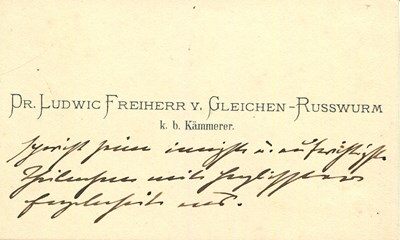 Dr. Ludwig Freiherr v. Gleichen-Russwurm
k. b. Kämmerer.
spricht seine innigste u. aufrichtigste
Theilnahme mit
aus.